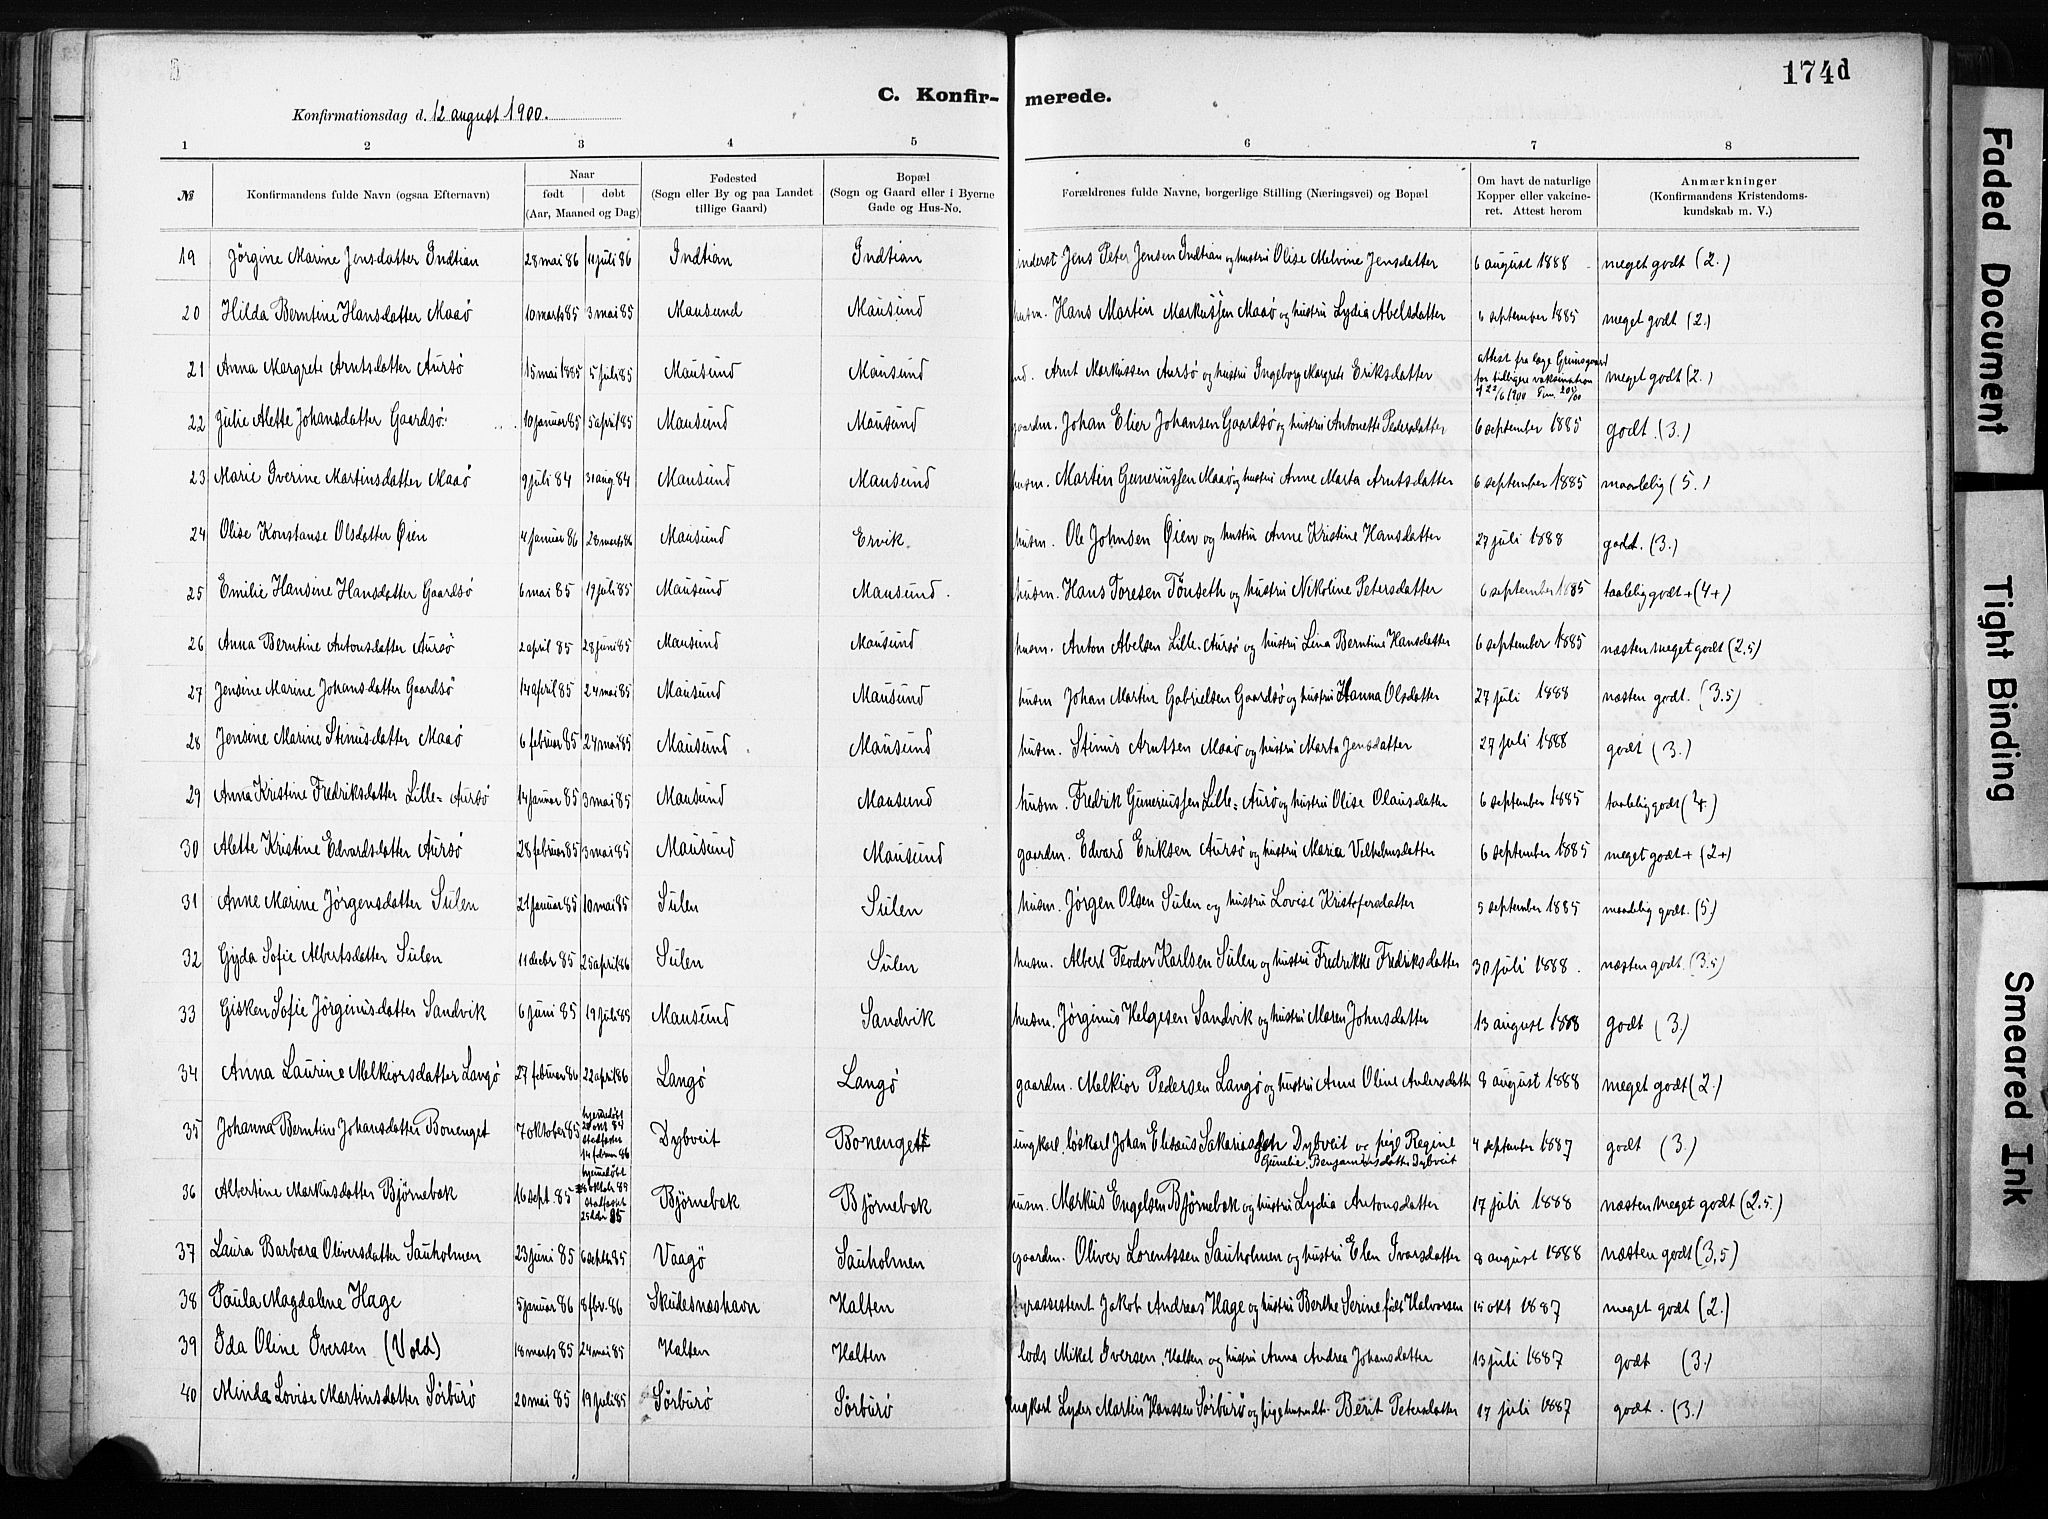 174d
C. Konfir- merede.
Konfirmationsdag d. 12 august 1900.
1 2 3 4 5 6 7 8
№ Konfirmandens fulde Navn (ogsaa Efternavn) Naar født døbt (Aar, Maaned og Dag) Fødested (Sogn eller By og paa Landet tillige Gaard) Bopæl (Sogn og Gaard eller i Byerne Gade og Hus-No. Forældrenes fulde Navne, borgerlige Stilling (Næringsvei) og Bopæl Om havt de naturlige Kopper eller vakcineret. Attest herom Anmærkninger (Konfirmandens Kristendomskundskab m. V.)
19 Jörgine Marine Jensdatter Indtian 28 mai 86 11 juli 86 Indtian Indtian inderst Jens Peter Jensen Indtian og hustru Olise Melvine Jensdatter 6 august 1888 meget godt (2.)
20 Hilda Berntine Hansdatter Maaö 10 marts 85 3 mai 85 Mausund Mausund husm. Hans Martin Markussen Maaö og hustru Lydia Abelsdatter 6 september 1885 meget godt (2.)
21 Anna Margrete Arntsdatter Aursö 15 mai 1885 5 juli 85 Mausund Mausund Arnt Markussen Aursö og hustru Ingeborg Margrete Eriksdatter attest fra læge for tidligere vaksination meget godt (2.)
22 Julie Alette Johansdatter Gaardsö 10 januar 85 5 april 85 Mausund Mausund gaardm. Johan Elier Johansen Gaardsö og hustru Antonette Pedersdatter 6 september 1885 godt. (3.)
23 Marie Iverine Martinsdatter Maaö 9 juli 84 31 aug 84 Mausund Mausund husm. Martin Guneriussen Maaö og hustru Anne Marta Arntsdatter 6 september 1885 maadelig (5.)
24 Olise Konstanse Olsdatter Øien 4 januar 86 28 marts 86 Mausund Ervik. husm. Ole Johnsen Øien og hustru Anne Kristine Hansdatter 27 juli 1888 godt. (3.)
25 Emilie Hansine Hansdatter Gaardsö 6 mai 85 19 juli 85 Mausund Mausund. husm. Hans Toresen Tönseth og hustru Nikoline Petersdatter 6 september 1885 taalelig godt + (4+)
26 Anna Berntine Antonsdatter Aursö 2 april 85 28 juni 85 Mausund Mausund husm. Anton Abelsen Lille-Aursö og hustru Lina Berntine Hansdatter 6 september 1885 næsten meget godt (2.5)
27 Jensine Marine Johansdatter Gaardsö 14 april 85 24 mai 85 Mausund Mausund husm Johan Martin Gabrielsen Gaardsö og hustru Hanna Olsdatter 27 juli 1888 næsten godt. (3.5)
28 Jensine Marine Stinusdatter Maaö 6 februar 85 24 mai 85 Mausund Mausund husm. Stinus Arntsen Maaö og hustru Marta Jensdatter 27 juli 1888 godt (3.)
29 Anna Kristine Fredriksdatter Lille=Aursö 14 januar 85 3 mai 85 Mausund Mausund husm. Fredrik Guneriussen Lille=Aursö og hustru Olise Olausdatter 6 september 1885 taalelig godt (4.)
30 Alette Kristine Edvardsdatter Aursö 28 februar 85 3 mai 85 Mausund Mausund gaardm. Edvard Eriksen Aursö og hustru Maria Vilhelmsdatter 6 september 1885 meget godt + (2+)
31 Anne Marine Jörgensdatter Sulen 21 januar 85 10 mai 85 Sulen Sulen husm. Jörgen Olsen Sulen og hustru Lovise Kristofersdatter 5 september 1885 maadelig godt. (5)
32 Gyda Sofie Albertsdatter Sulen 11 decbr 85 25 april 86 Sulen Sulen husm. Albert Teodor Karlsen Sulen og hustru Fredrikke Fredriksdatter 30 juli 1888. næsten godt. (3.5)
33 Gisken Sofie Jörginusdatter Sandvik 6 juni 85 19 juli 85 Mausund Sandvik husm. Jörginus Helgesen Sandvik og hustru Maren Johnsdatter 13 august 1888 godt (3.)
34 Anna Laurine Melkiorsdatter Langö 27 februar 86 22 april 86 Langö Langö gaardm. Melkior Pedersen Langö og hustru Anne Oline Andersdatter 8 august 1888 meget godt (2.)
35 Johanna Berntine Johansdatter Bonenget 7 oktober 85 hjemmedöbt stadfæstet 14 februar 86 Dybveit Bonenget ungkarl, löskarl Johan Eliseus Sakariassen Dybveit og pige Regine Gurelie Benjaminsdatter Dybveit 4 september 1887 godt (3.)
36 Albertine Markusdatter Björnebæk 16 sept. 85 hjemmedöbt oktobr 85 stadfæstet 85 Björnebæk Björnebæk husm. Markus Engelsen Björnebæk og hustru Lydia Antonsdatter 17 juli 1888 næsten meget godt (2.5.)
37 Laura Barbara Oliversdatter Sauholmen 23 juni 85 6 septb 85 Vaagö Sauholmen gaardm. Oliver Lorentssen Sauholmen og hustru Elen Ivarsdatter 8 august 1888 næsten godt (3,5)
38 Paula Magdalene Hage 5 januar 86 8 fbr. 86 Skudesnæshavn Halten fyrassistent Jakob Andreas Hage og hustru Berthe Serine född Halvorsen 15 okt 1887 meget godt (2.)
39 Ida Oline Iversen (Vold) 18 marts 85 24 mai 85 Halten Halten lods Mikal Iversen, Halten og hustru Anna Andrea Johansdatter 13 juli 1887 godt (3.)
40 Minda Lovise Martinsdatter Sörburö 20 mai 85 19 juli 85 Sörburö Sörburö ungkarl Lyder Martin Hanssen Sörburö og pige Berit Petersdatter 17 juli 1887 godt. (3.)
Faded Document
Tight Binding
Smeared Ink